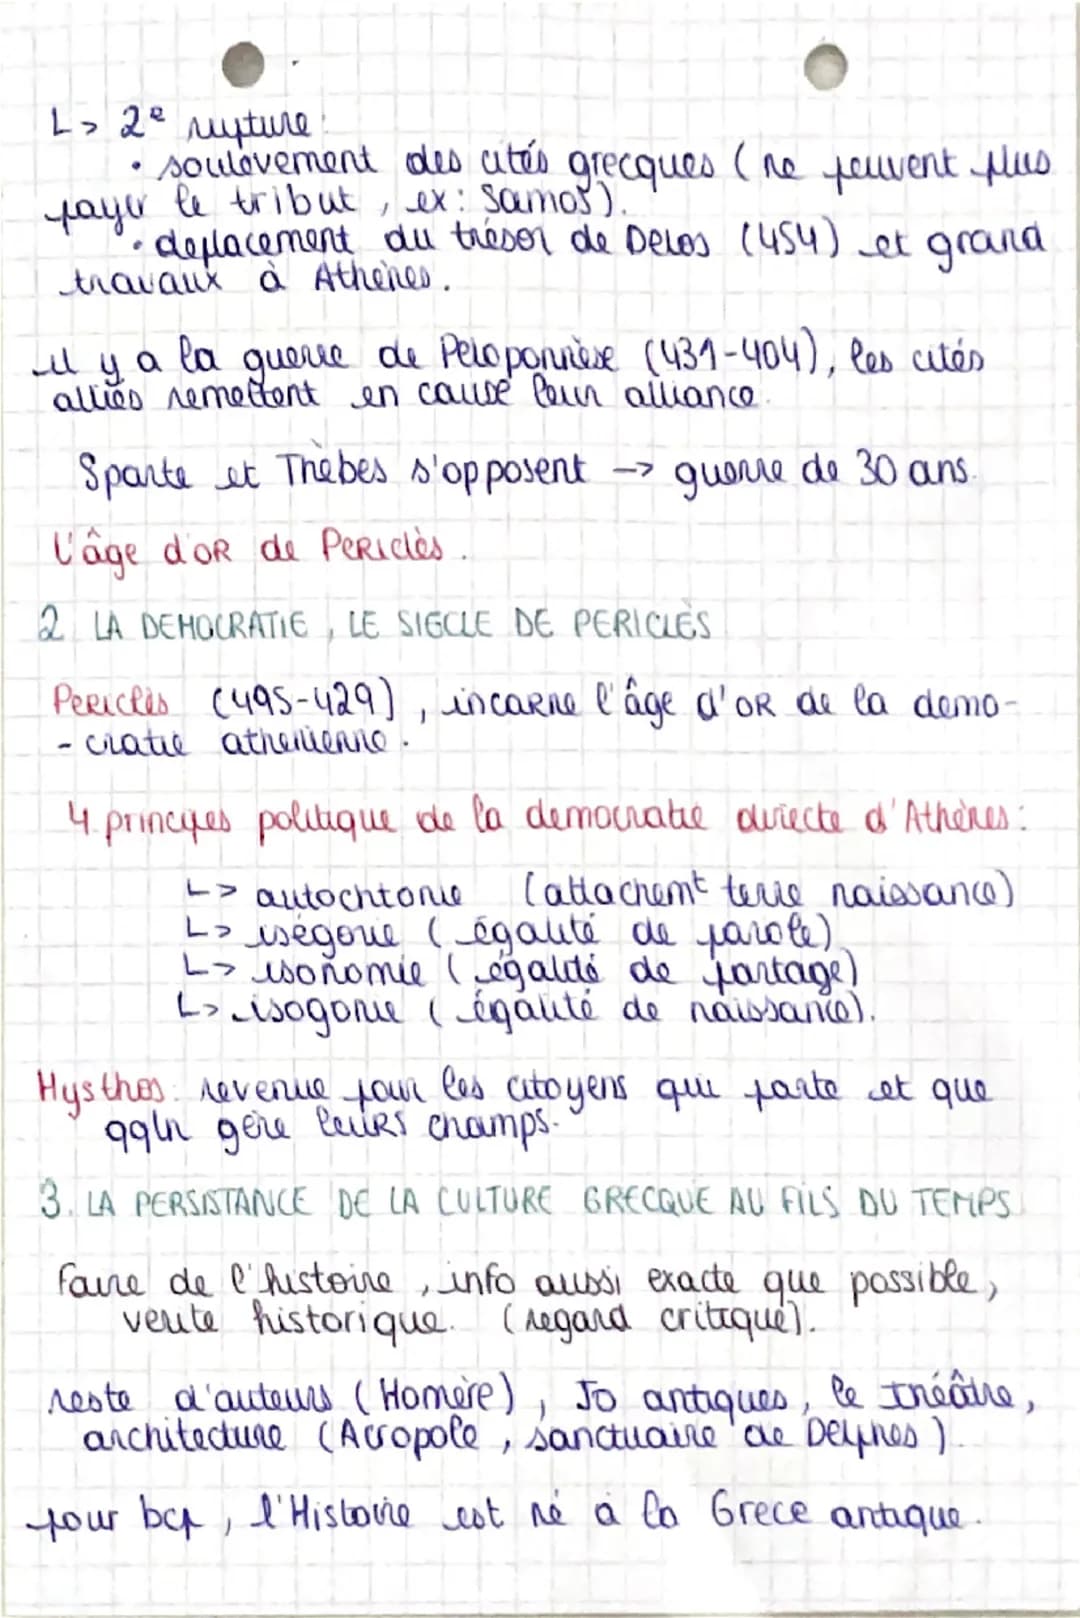 L> 2e rupture:
• soulèvement des cités grecques (ne peuvent plus
payer le tribut, ex: Samos).
• deplacement du trésor de Delos (454) et grand
travaux à Athènes.
il y a la guerre de Peloponnèse (431-404), les cités
alliés remettent en cause leur alliance.
Sparte et Thèbes s'opposent -> guerre de 30 ans.
L'âge d'or de Periclès.
2. LA DEMOCRATIE, LE SIECLE DE PERICLÈS
Periclès (495-429), incarne l'âge d'or de la demo-
-cratie athenienne.
4 principes politique de la democratie directe d'Athènes:
L> autochtonie (attachemt terre naissance)
L> iségorie (égalité de parole)
L> isonomie (égalité de partage)
L> isogonie (égalité de naissance).
Mysthos: revenue pour les citoyens qui parte et que
qqln gère leurs champs.
3. LA PERSISTANCE DE LA CULTURE GRECQUE AU FILS DU TEMPS
Faire de l'histoire, info aussi exacte que possible,
verite historique. (regard critique).
reste d'auteurs (Homère), Jo antiques, le théâtre,
architecture (Acropole, sanctuaire de Delphes).
pour bcp, l'Histoire est né à la Grece antique.